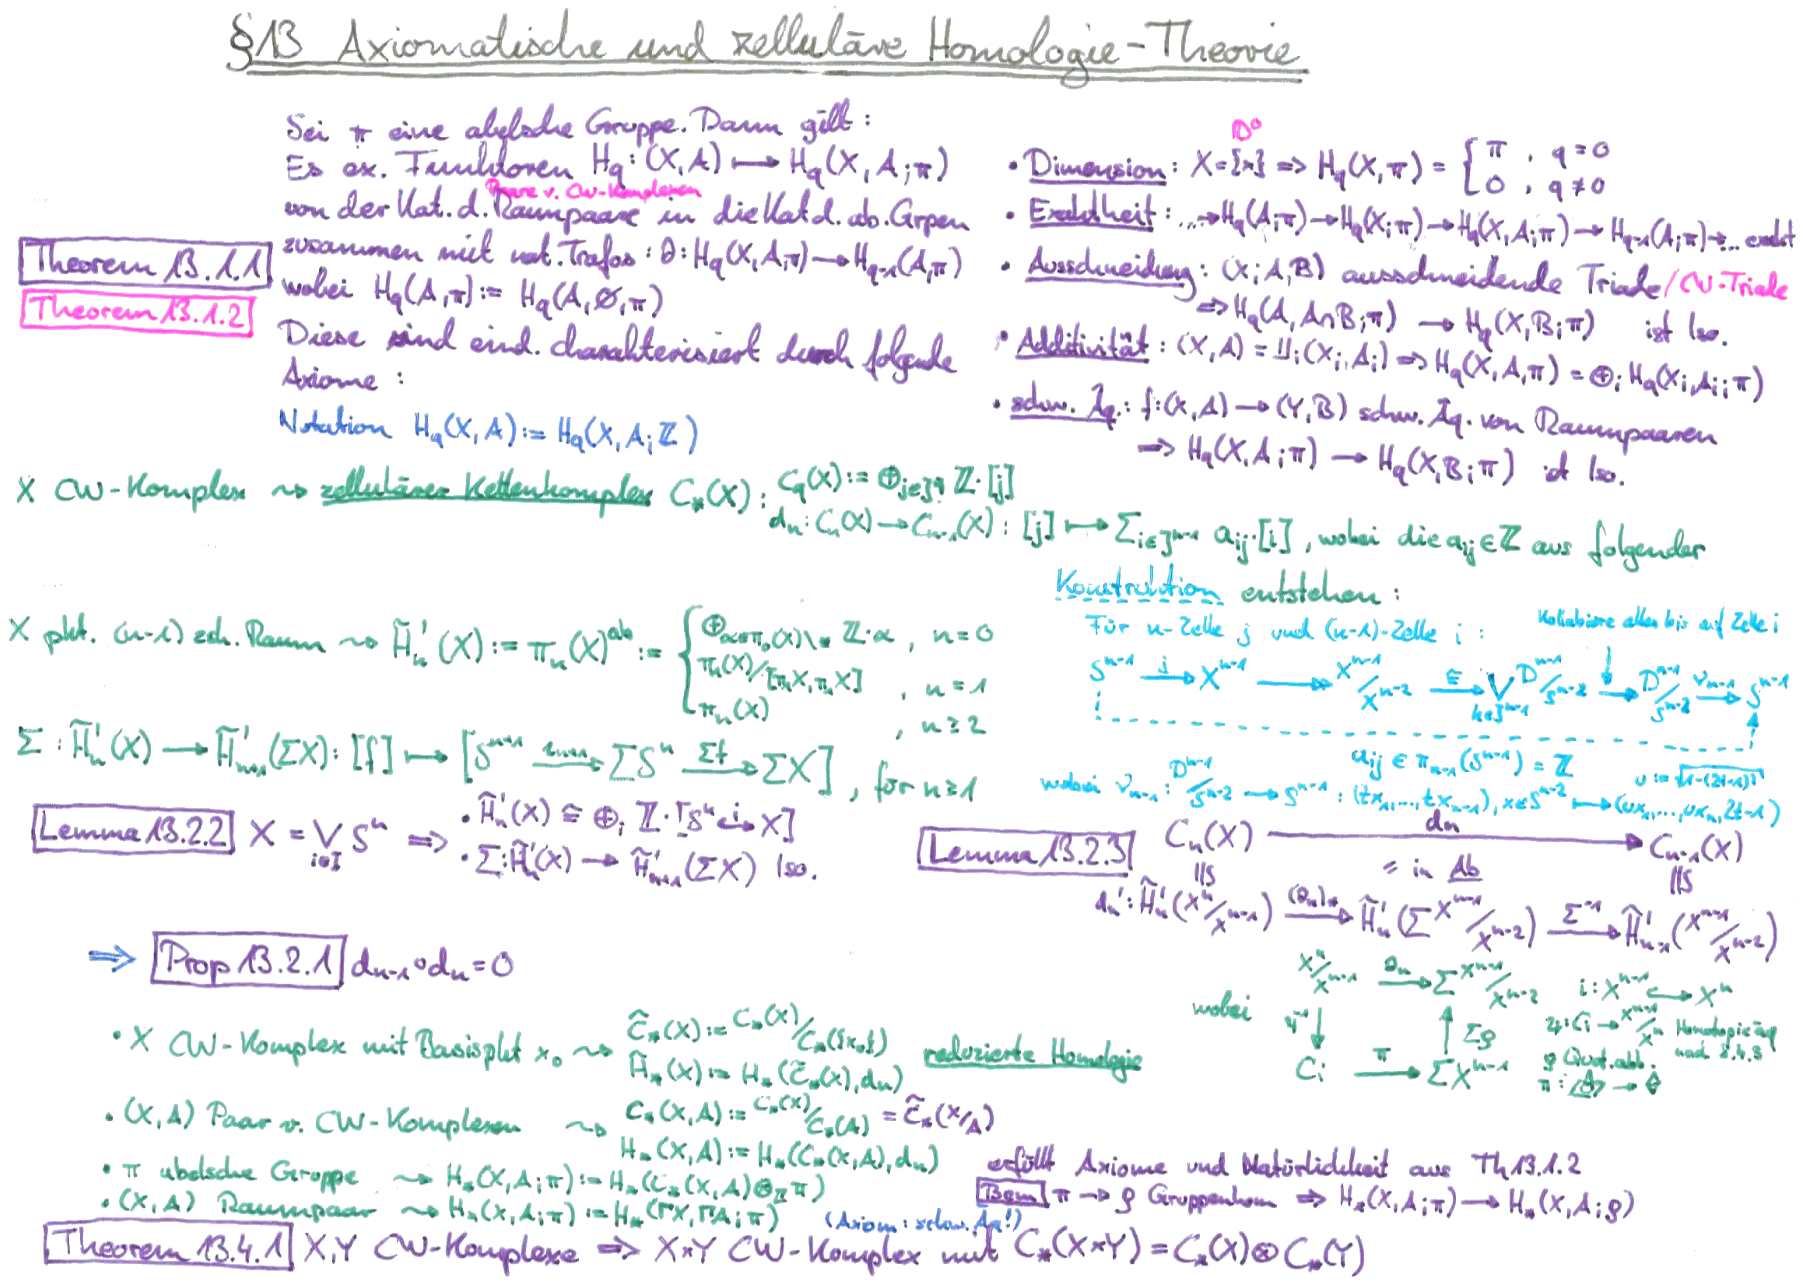 §13 Axiomatische und zelluläre Homologie-Theorie
Theorem 13.1.1
Theorem 13.1.2
Sei π eine abelsche Gruppe. Dann gilt:
Es ex. Funktoren H_q: (X,A) ⟼ H_q(X,A;π)
Paare v. CW-Komplexen
von der Kat. d. Raumpaare in die Kat d. ab. Grpen
zusammen mit nat. Trafos: ∂: H_q(X,A;π) → H_{q-1}(A,π)
wobei H_q(A,π) := H_q(A,∅,π)
Diese sind eind. charakterisiert durch folgende
Axiome:
Notation H_q(X,A) := H_q(X,A;ℤ)
D⁰
• Dimension: X={*} ⇒ H_q(X,π) = { π , q=0
0 , q≠0
• Exaktheit: ...→H_q(A;π)→H_q(X;π)→H_q(X,A;π)→H_{q-1}(A;π)→... exakt
• Ausschneidung: (X;A,B) ausschneidende Triade/CW-Triade
⇒ H_q(A,A∩B;π) → H_q(X,B;π) ist Iso.
• Additivität: (X,A) = ⨿_i(X_i,A_i) ⇒ H_q(X,A,π) = ⊕_i H_q(X_i,A_i;π)
• schw. Äq.: f:(X,A) → (Y,B) schw. Äq. von Raumpaaren
⇒ H_q(X,A;π) → H_q(X,B;π) ist Iso.
X CW-Komplex ⇝ zellulärer Kettenkomplex C_*(X): C_q(X) := ⊕_{j∈J^q} ℤ·[j]
d_n: C_n(X) → C_{n-1}(X): [j] ⟼ Σ_{i∈J^{n-1}} a_{ij}·[i], wobei die a_{ij}∈ℤ aus folgender
Konstruktion entstehen:
Für n-Zelle j und (n-1)-Zelle i:
Kollabiere alles bis auf Zelle i
S^{n-1} →^j X^{n-1} → X^{n-1}/X^{n-2} →^≅ ⋁_{k∈J^{n-1}} D^{n-1}/S^{n-2} → D^{n-1}/S^{n-2} →^{ν_{n-1}} S^{n-1}
a_{ij} ∈ π_{n-1}(S^{n-1}) = ℤ
u := √(1-(2t-1)²)
wobei ν_{n-1}: D^{n-1}/S^{n-2} → S^{n-1}: (tx_1,...,tx_{n-1}), x∈S^{n-2} ⟼ (ux_1,...,ux_n, 2t-1)
X pkt. (n-1) zsh. Raum ⇝ H̃'_n(X) := π_n(X)^{ab} := { ⊕_{α∈π_0(X)\*} ℤ·α , n=0
π_n(X)/[π_nX,π_nX] , n=1
π_n(X) , n≥2
Σ: H̃'_n(X) → H̃'_{n+1}(ΣX): [f] ⟼ [S^{n+1} → ΣS^n →^{Σf} ΣX], für n≥1
Lemma 13.2.2 X = ⋁_{i∈I} S^n ⇒ • H̃'_n(X) ≅ ⊕_i ℤ·[S^n ↪^i X]
• Σ: H̃'_n(X) → H̃'_{n+1}(ΣX) Iso.
Lemma 13.2.3 C_n(X) →^{d_n} C_{n-1}(X)
= in Ab
d'_n: H̃'_n(X^n/X^{n-1}) →^{(∂_n)_*} H̃'_n(ΣX^{n-1}/X^{n-2}) →^{Σ^{-1}} H̃'_{n-1}(X^{n-1}/X^{n-2})
⇒ Prop 13.2.1 d_{n-1}∘d_n = 0
wobei X^n/X^{n-1} →^{∂_n} ΣX^{n-1}/X^{n-2}
ψ^{-1} ↓ ↑ Σρ
Ci →^π ΣX^{n-1}
i: X^{n-1} ↪ X^n
ψ: Ci → X^{n-1}/X^n Homotopieäq
nach 8.4.3
ρ Quot.abb.
• X CW-Komplex mit Basispkt x_0 ⇝ C̃_*(X) := C_*(X)/C_*({x_0})
H̃_*(X) := H_*(C̃_*(X),d_n) reduzierte Homologie
• (X,A) Paar v. CW-Komplexen ⇝ C_*(X,A) := C_*(X)/C_*(A) = C̃_*(X/A)
H_*(X,A) := H_*(C_*(X,A),d_n)
• π abelsche Gruppe ⇝ H_*(X,A;π) := H_*(C_*(X,A)⊗_ℤ π)
• (X,A) Raumpaar ⇝ H_*(X,A;π) := H_*(ΓX,ΓA;π) (Axiom: schw. Äq!)
erfüllt Axiome und Natürlichkeit aus Th 13.1.2
Bem π → ρ Gruppenhom ⇒ H_*(X,A;π) → H_*(X,A;ρ)
Theorem 13.4.1 X,Y CW-Komplexe ⇒ X×Y CW-Komplex mit C_*(X×Y) = C_*(X)⊗C_*(Y)